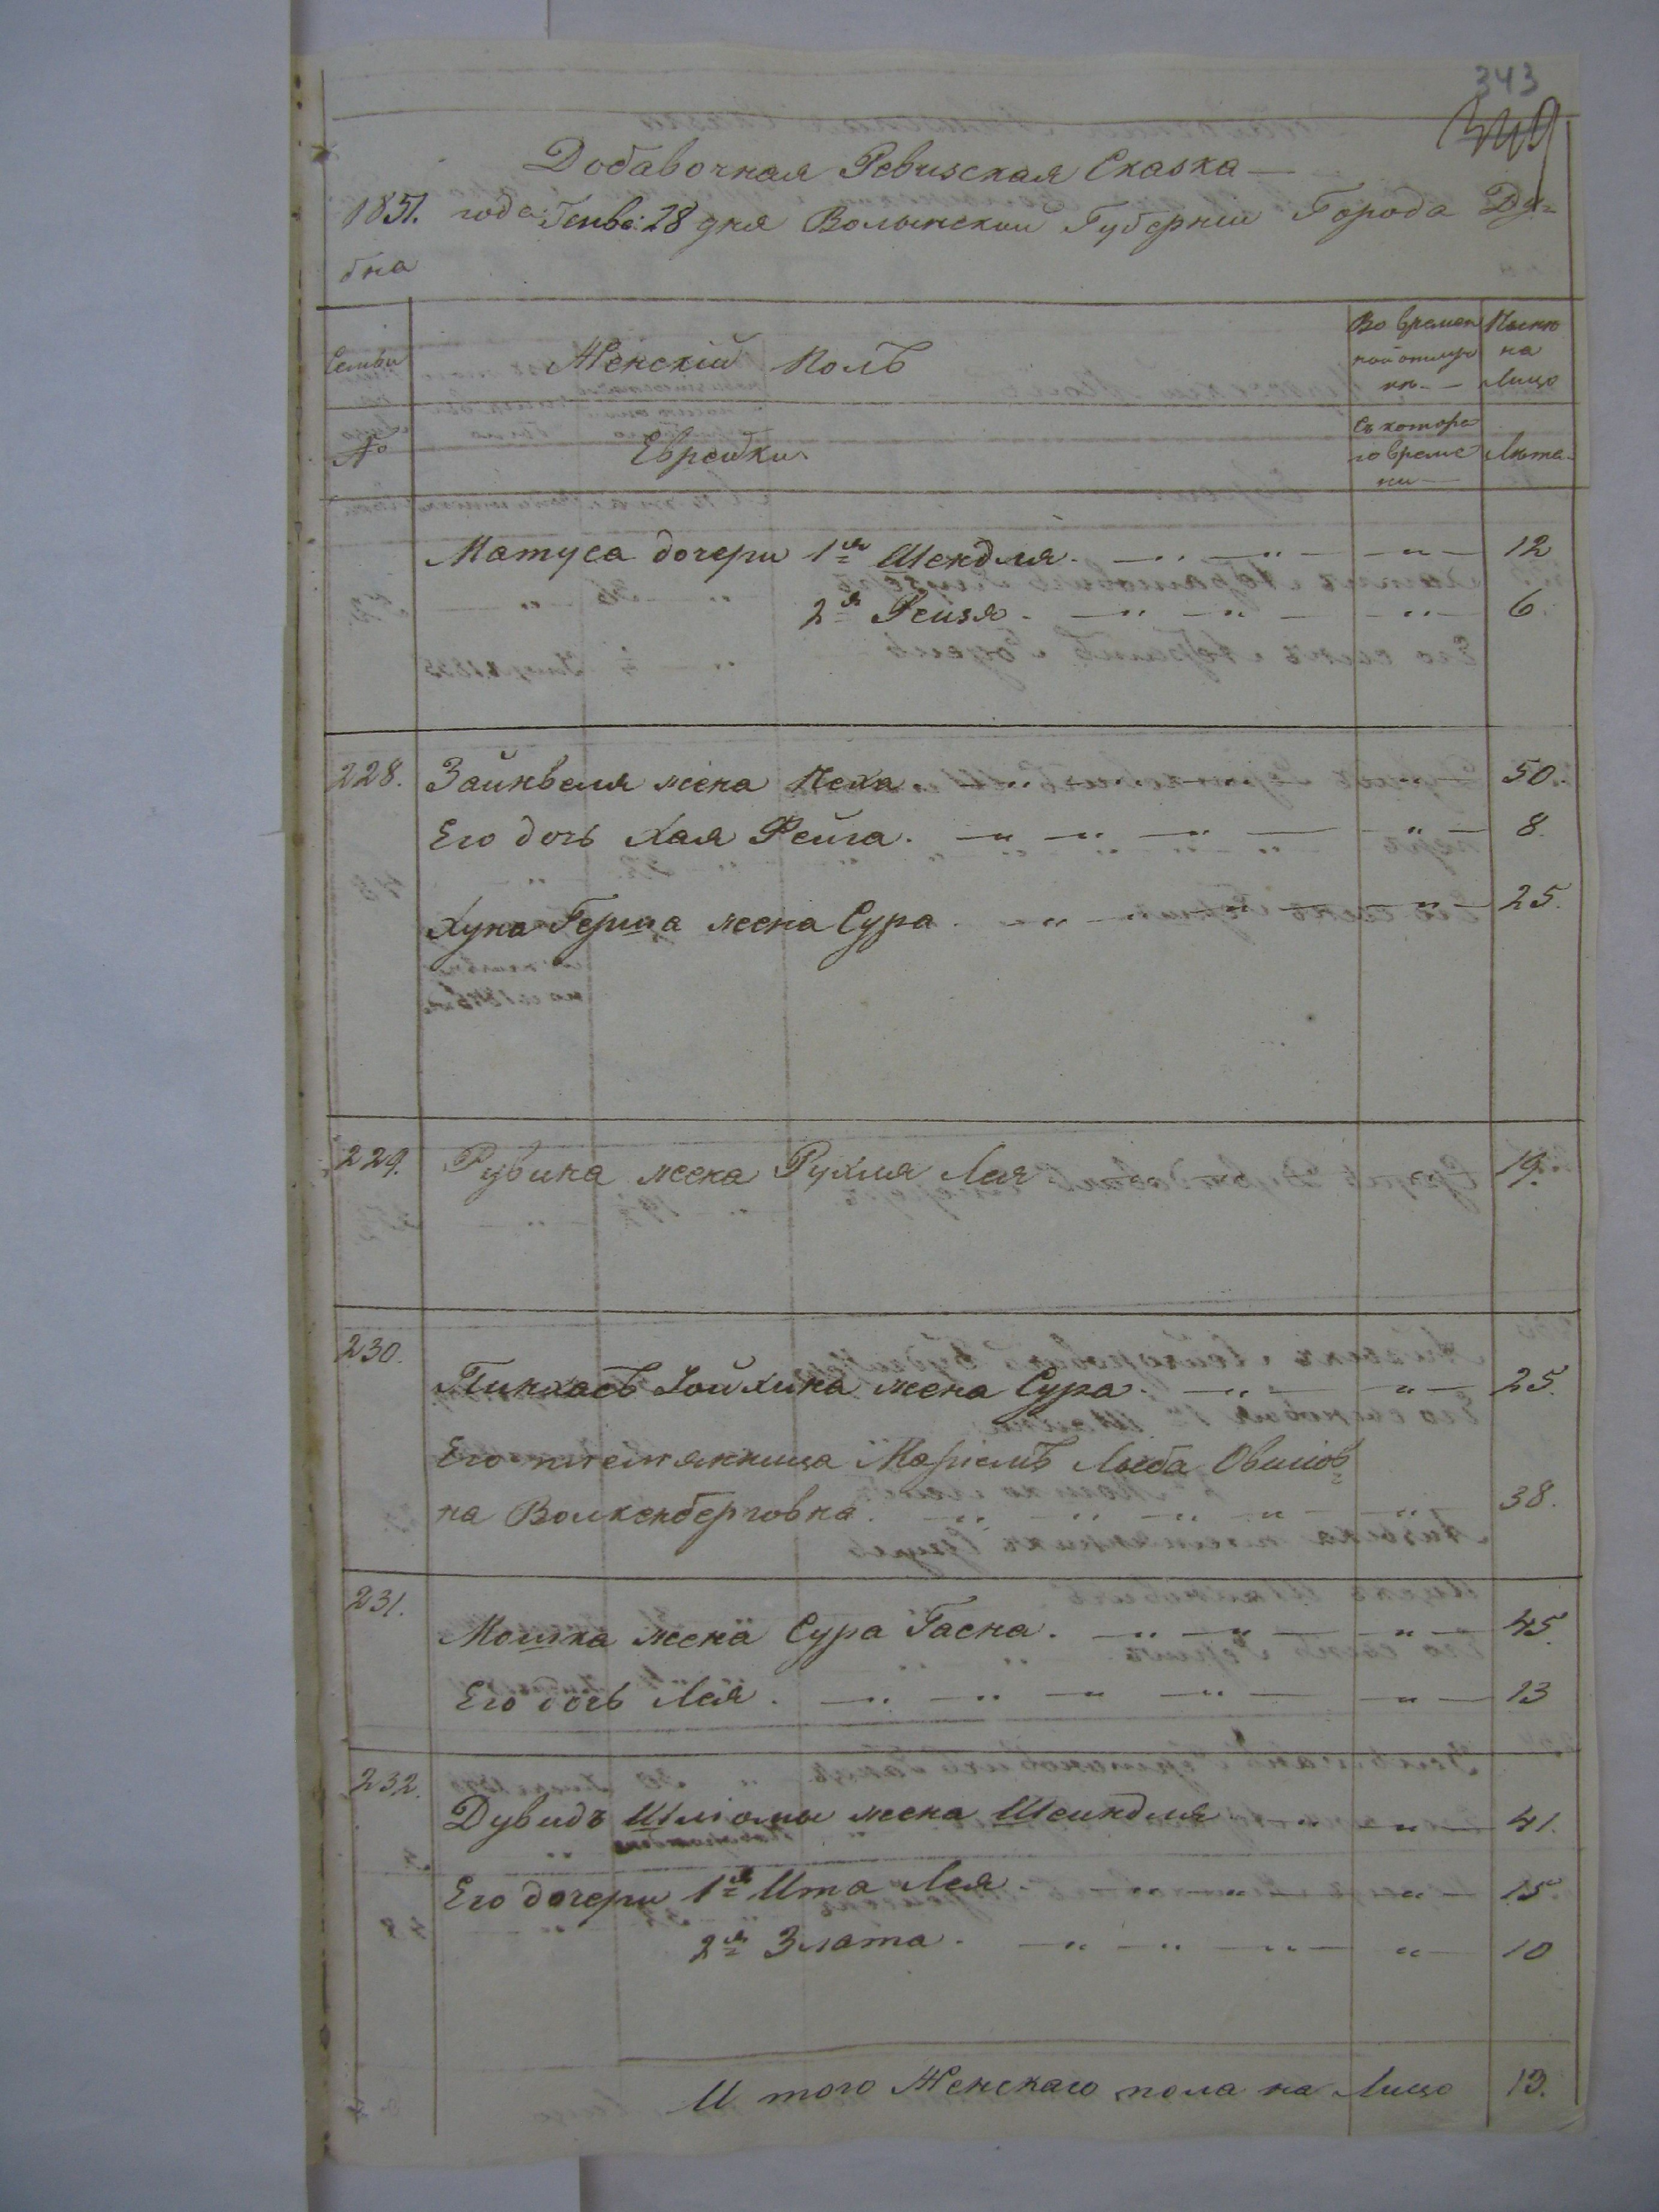 343
Добавочная Ревизская Сказка
1851. года Генва: 28 дня Волынской Губернии Города Ду=
бна
Семьи Женскій Полъ Во времен Ныне
ной отлуч на
ке Лицо
№ Еврейки Съ которо
го време Лета
ни
Матуса дочери 1я Шендля 12
2я Рейзя 6
228. Зайнвеля жена Песа 50.
Его дочь Хая Фейга 8.
Хуна Герша жена Сура 25.
229. Рувина жена Рухля Лея 19.
230.
Пинхасъ Хойхина жена Сура 25.
Его племянница Маріемъ Люба Овшіов=
на Волкенберговна 38.
231.
Мошка жена Сура Гасна 45.
Его дочь Лея 13
232.
Дувидъ Шліомы жена Шейндля 41.
Его дочери 1я Ита Лея 15
2я Злата 10
И того Женскаго пола на Лицо 13.